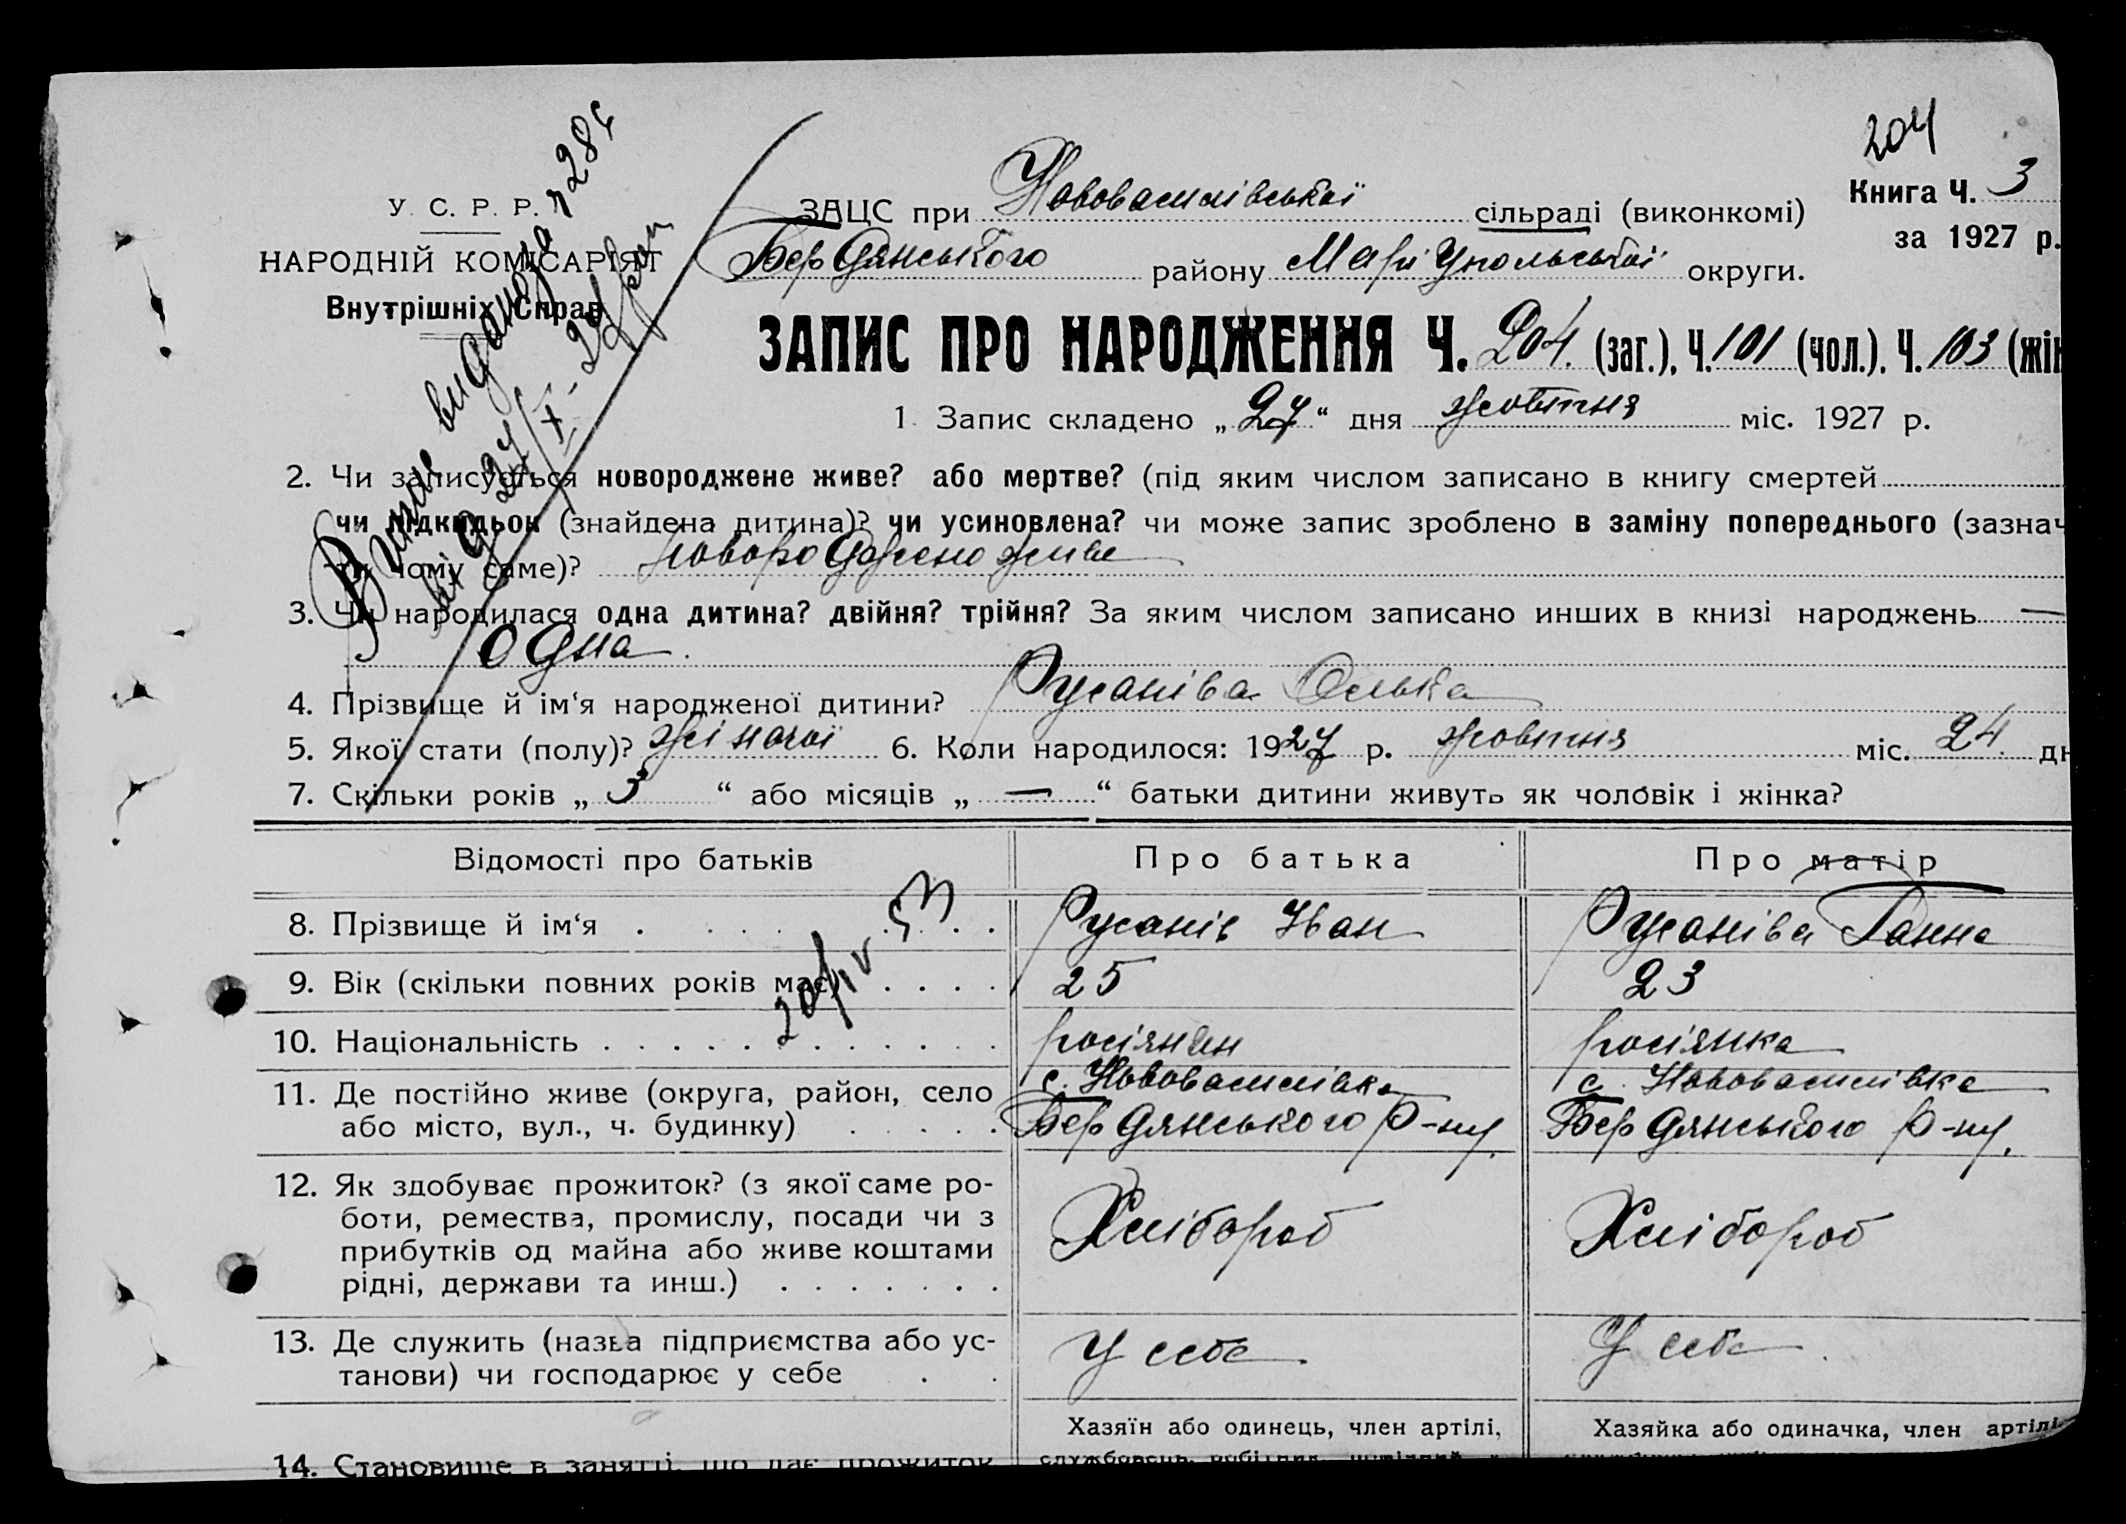 204
У. С. Р. Р.
НАРОДНІЙ КОМІСАРІЯТ
Внутрішніх Справ
ЗАЦС при Нововасилівської сільраді (виконкомі)
Книга Ч. 3
за 1927 р.
Бердянського району Маріупольської округи.
ЗАПИС ПРО НАРОДЖЕННЯ Ч. 204. (заг.), Ч. 101 (чол.). Ч. 103 (жін
1. Запис складено „27“ дня жовтня міс. 1927 р.
2. Чи записується новороджене живе? або мертве? (під яким числом записано в книгу смертей
чи підкидьок (знайдена дитина)? чи усиновлена? чи може запис зроблено в заміну попереднього (зазнач
ти чому саме)? новороджено живе
3. Чи народилася одна дитина? двійня? трійня? За яким числом записано инших в книзі народжень —
одна.
4. Прізвище й ім‘я народженої дитини? Русаніва Олька
5. Якої стати (полу)? жіночої 6. Коли народилося: 1927 р. жовтня міс. 24 дн
7. Скільки років „3“ або місяців „—“ батьки дитини живуть як чоловік і жінка?
Відомості про батьків Про батька Про матір
8. Прізвище й ім‘я . . . . . . . Русанів Іван Русаніва Ганна
9. Вік (скільки повних років має) . . . . 25 23
20/IV 53
10. Національність . . . . . . . . . . . . . росіянин росіянка
11. Де постійно живе (округа, район, село с. Нововасилівка с. Нововасилівка
або місто, вул., ч. будинку) . . . . . Бердянського р-ну. Бердянського р-ну.
12. Як здобуває прожиток? (з якої саме ро-
боти, ремества, промислу, посади чи з Хлібороб Хлібороб
прибутків од майна або живе коштами
рідні, держави та инш.) . . . . . . .
13. Де служить (назва підприємства або ус- У себе. У себе.
танови) чи господарює у себе . .
Хазяїн або одинець, член артілі, Хазяйка або одиначка, член артілі
14. Становище в занятті, що дає прожиток службовець, робітник,
Випис видано за
від 27/X-27 року